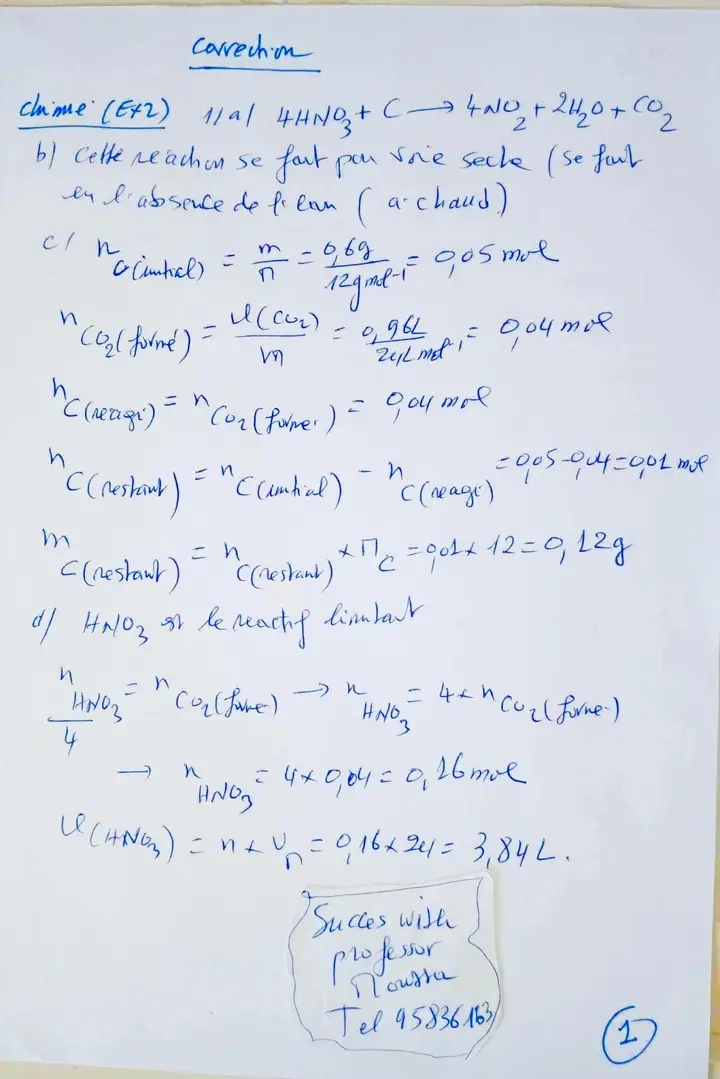 Correction
chimie (Ex2) 1/a/ 4HNO₃ + C → 4NO₂ + 2H₂O + CO₂
b) Cette reaction se fait par voie seche (se fait
en l'absence de l'eau (a chaud)
c/ n C(initial) = m/M = 0,6g/12g mol⁻¹ = 0,05 mol
n CO₂(formé) = V(CO₂)/VM = 0,96L/24L mol⁻¹ = 0,04 mol
n C(reagi) = n CO₂(formé) = 0,04 mol
n C(restant) = n C(initial) - n C(reagi) = 0,05-0,04=0,01 mol
m C(restant) = n C(restant) × M C = 0,01 × 12 = 0,12g
d/ HNO₃ est le reactif limitant
n HNO₃/4 = n CO₂(formé) → n HNO₃ = 4 × n CO₂(formé)
→ n HNO₃ = 4 × 0,04 = 0,16 mol
V(HNO₃) = n × VM = 0,16 × 24 = 3,84 L.
Succes with
professor
Moussa
Tel 95836163
1